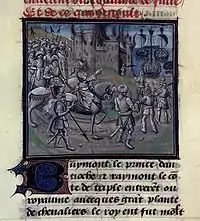 Et de ce que
Buymont le prince dan
tioche z raymont le cõ
te de triple entrerẽt ou
royaume auecques grãt plante
de cheualiers le roy ent fut molt